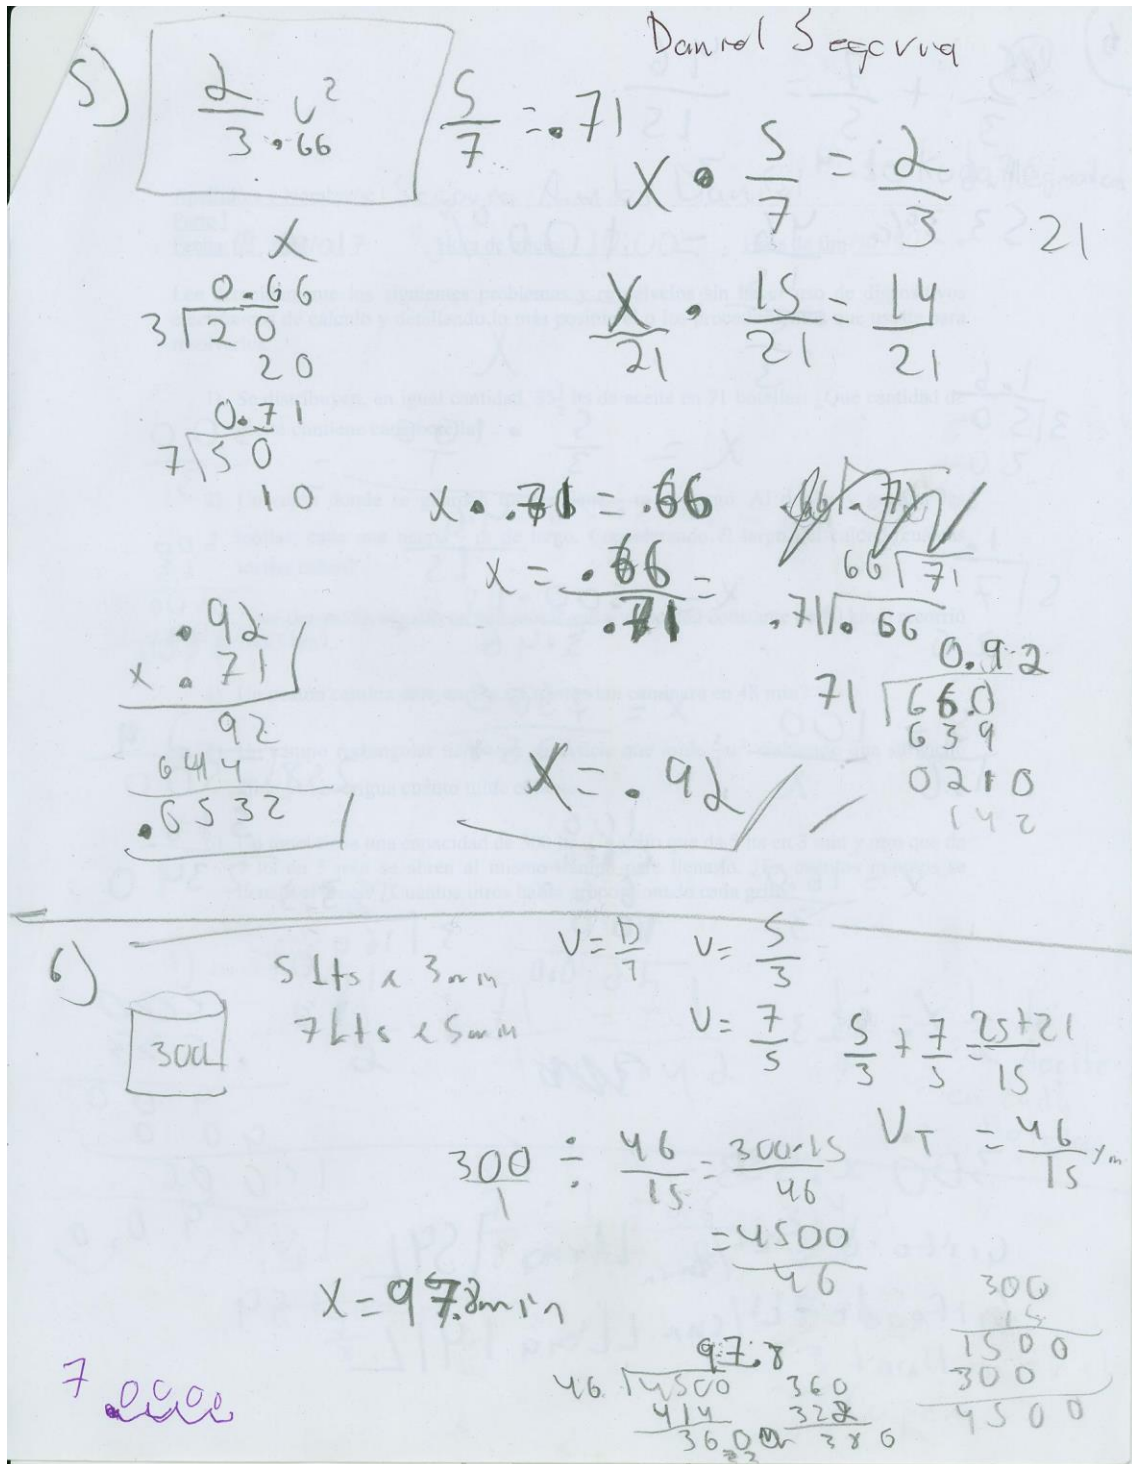 Daniel Segovia
5)
2/3 u²
.66
5/7 = .71
x • 5/7 = 2/3
21
x/21 • 15/21 = 14/21
x
0.66
3 20
20
0.71
7 50
10
x • .71 = .66
x = .66/.71 =
66 71
.71 .66
0.92
71 66.0
639
0210
142
.92
x .71
92
644
.6532
x = .92
6)
300L
5 Lts x 3min
7 Lts x 5min
V = D/T
V = 5/3
V = 7/5
5/3 + 7/5 = 25+21/15
VT = 46/15
300/1 ÷ 46/15 = 300·15/46
= 4500/46
x = 97.8min
300
15
1500
300
4500
97.8
46 4500
414
360
322
380
7